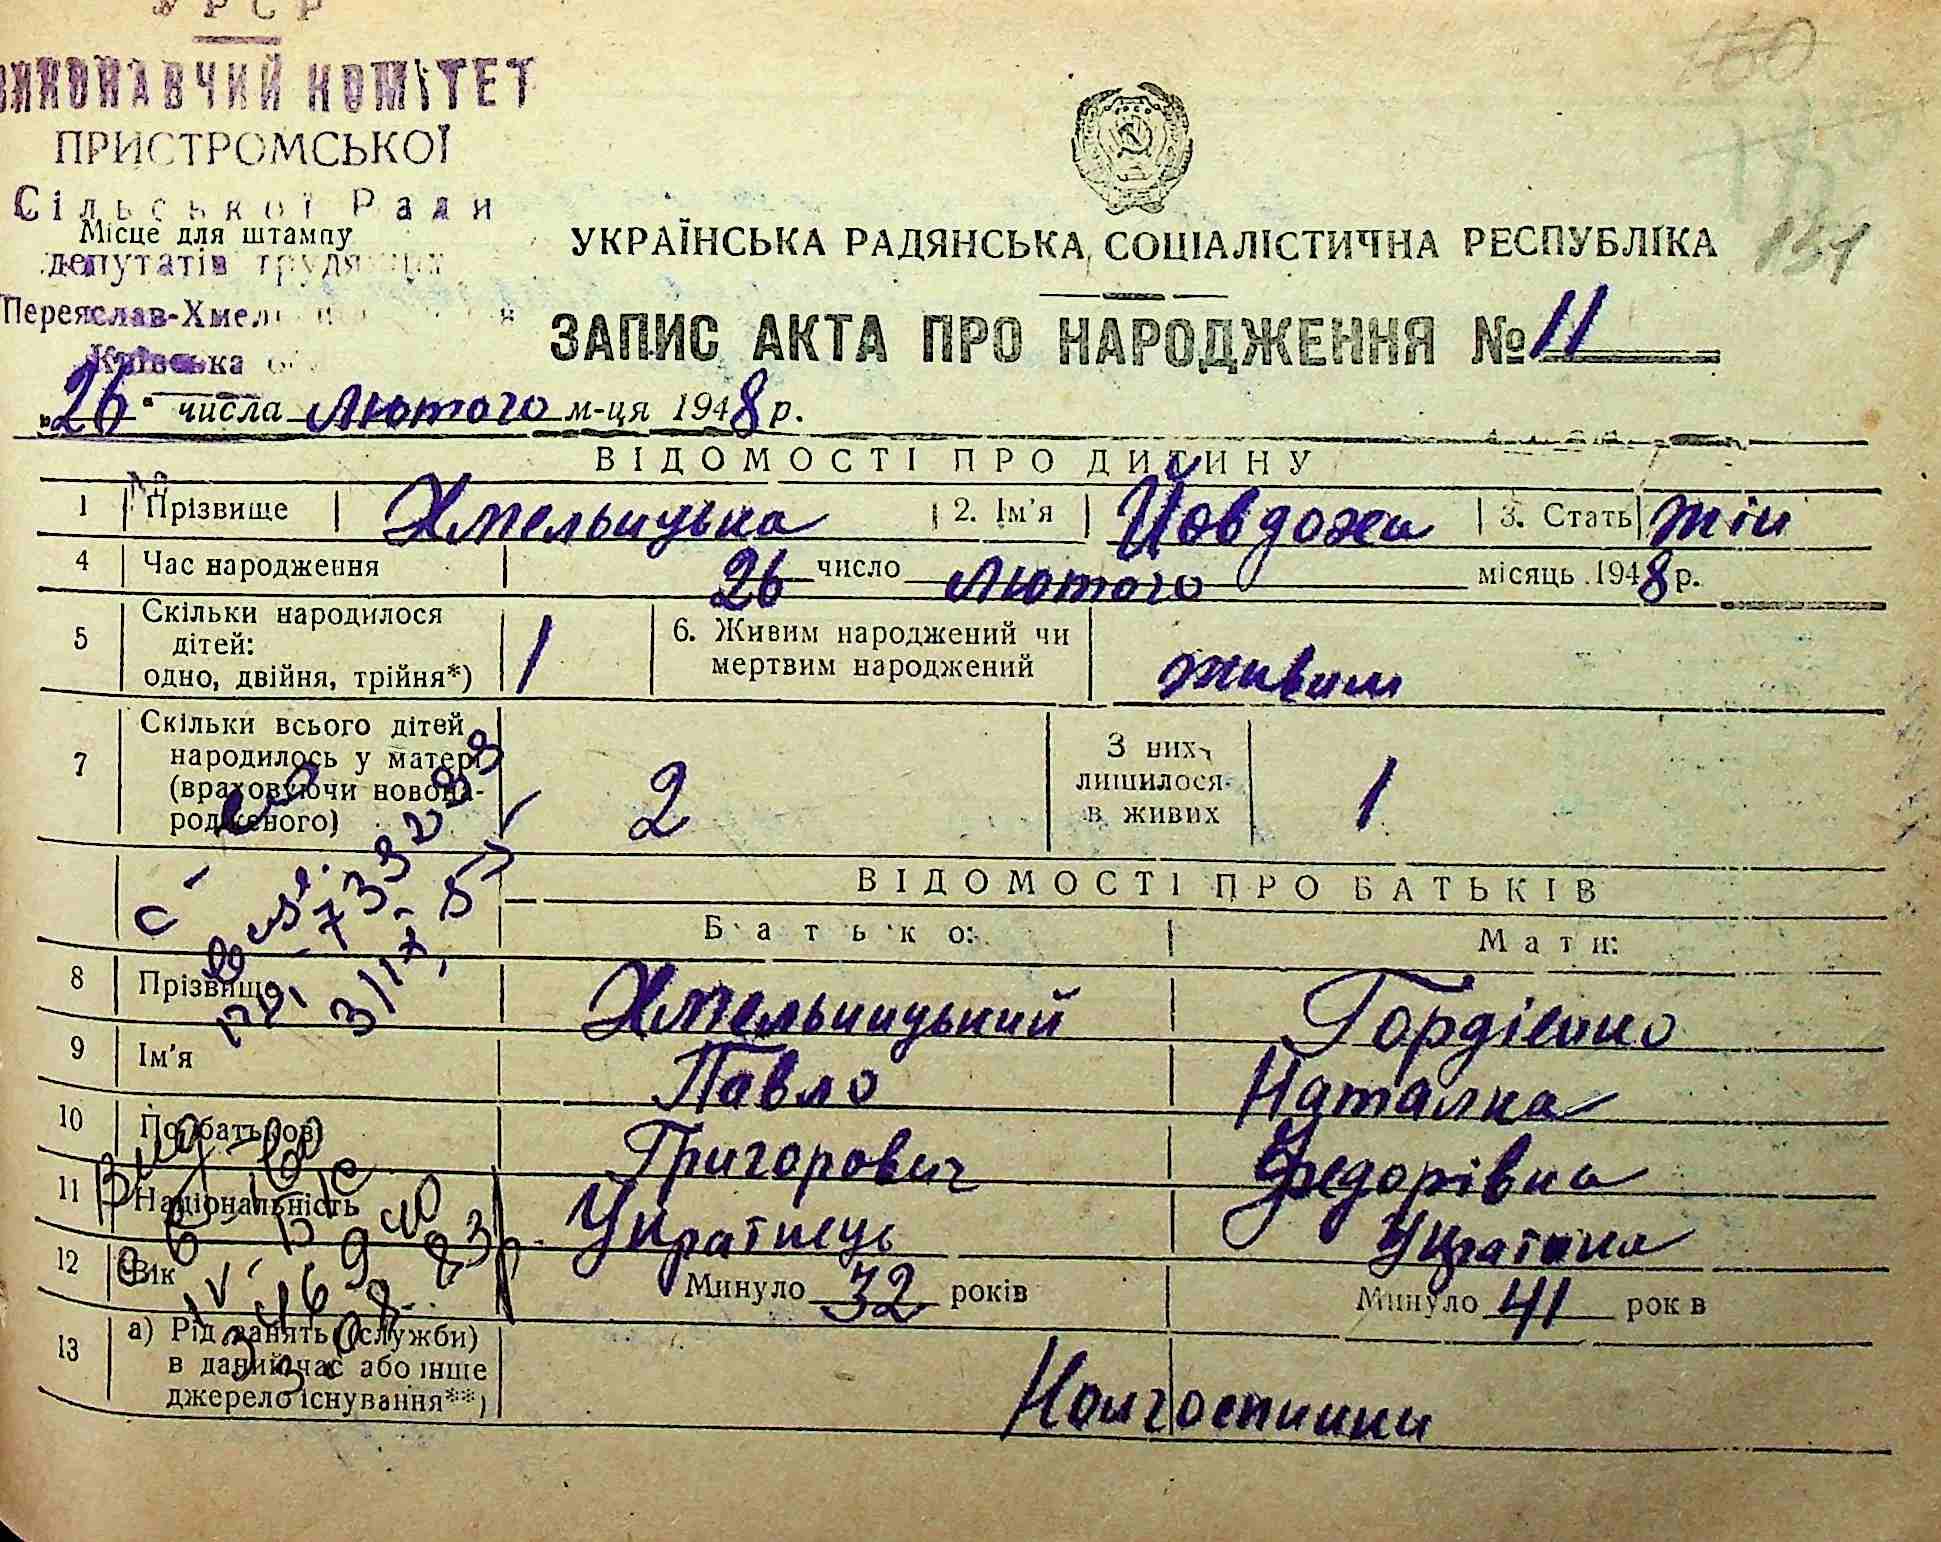 УРСР
ВИКОНАВЧИЙ КОМІТЕТ
ПРИСТРОМСЬКОЇ
Сільської Ради
Місце для штампу
депутатів трудящих
Переяслав-Хмел
Київська
130
131
УКРАЇНСЬКА РАДЯНСЬКА СОЦІАЛІСТИЧНА РЕСПУБЛІКА
ЗАПИС АКТА ПРО НАРОДЖЕННЯ № 11
„26" числа лютого м-ця 1948 р.
ВІДОМОСТІ ПРО ДИТИНУ
1 Прізвище Хмельницька 2. Ім'я Йовдоха 3. Стать жін
4 Час народження 26 число лютого місяць 1948 р.
5 Скільки народилося дітей: одно, двійня, трійня*) 1 6. Живим народжений чи мертвим народжений живим
7 Скільки всього дітей народилось у матері (враховуючи новонародженого) 2 З них лишилося в живих 1
ВІДОМОСТІ ПРО БАТЬКІВ
Батько: Мати:
8 Прізвище Хмельницький Гордієнко
9 Ім'я Павло Наталка
10 По батькові Григорович Федорівна
11 Національність Українець Українка
12 Вік Минуло 32 років Минуло 41 рок в
13 а) Рід занять (служби) в даний час або інше джерело існування**) Колгоспники